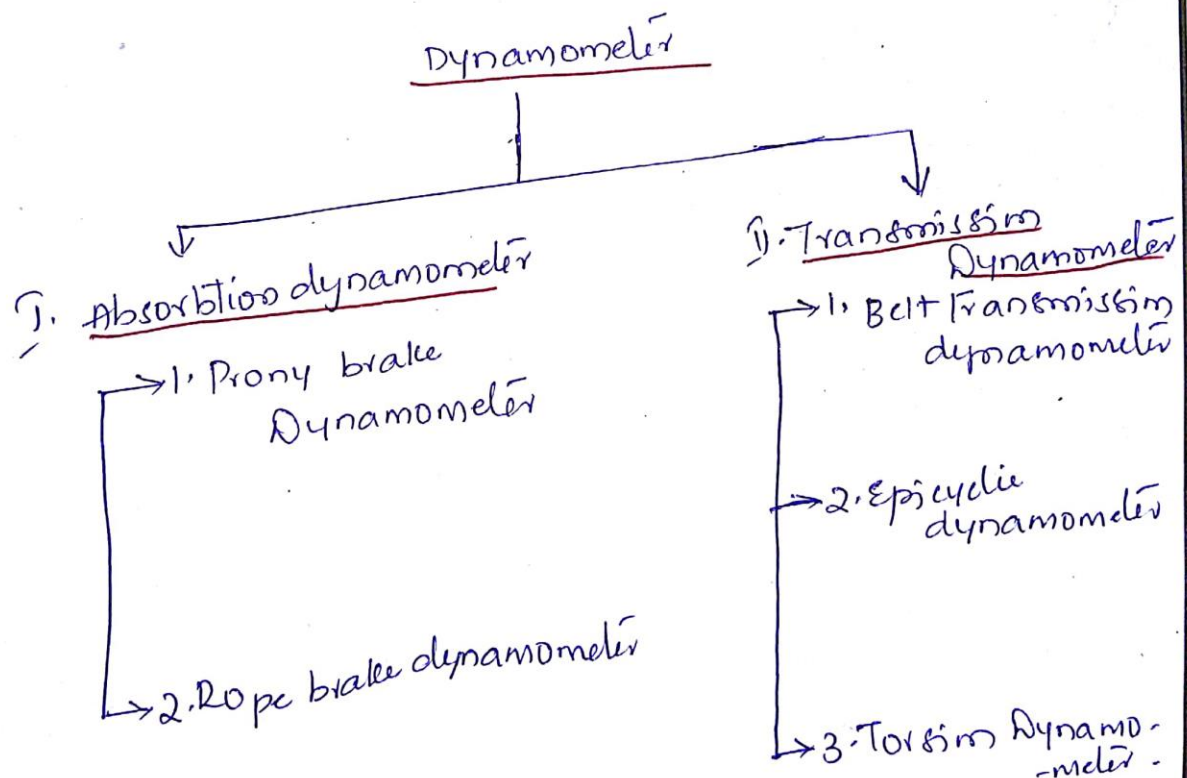 Dynamometer
I. Absorbtion dynamometer
1. Prony brake
Dynamometer
2. Rope brake dynamometer
II. Transmission
Dynamometer
1. Belt Transmission
dynamometer
2. Epicyclic
dynamometer
3. Torsion Dynamo-
-meter.